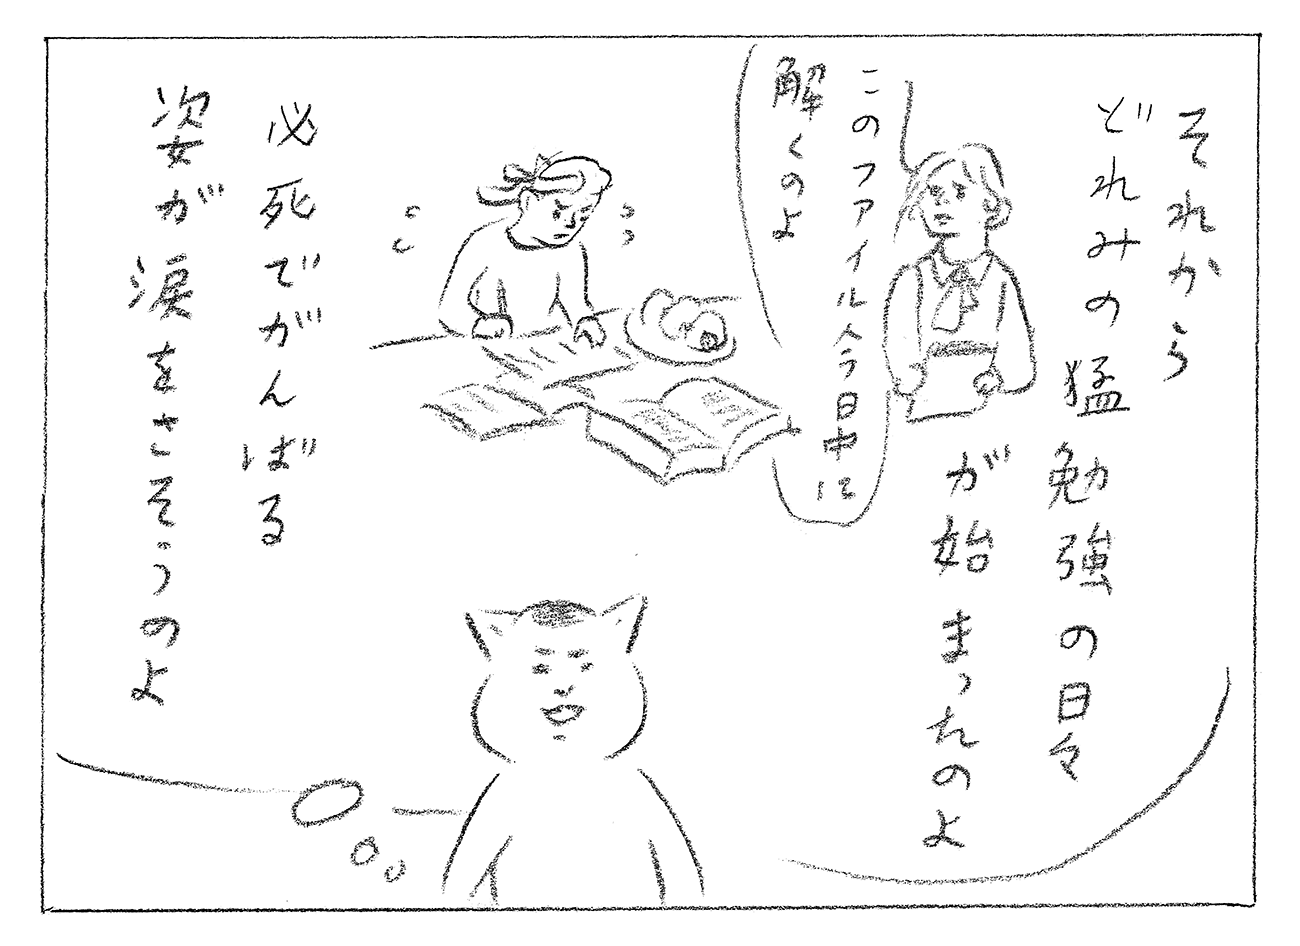 それから
どれみの猛勉強の日々
が始まったのよ
このファイル今日中に
解くのよ
必死でがんばる
姿が涙をさそうのよ